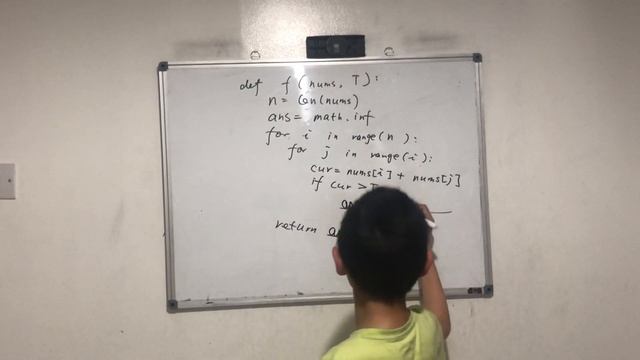 def f(nums, T):
n = len(nums)
ans = math.inf
for i in range(n):
for j in range(i):
cur = nums[i] + nums[j]
if cur >
return